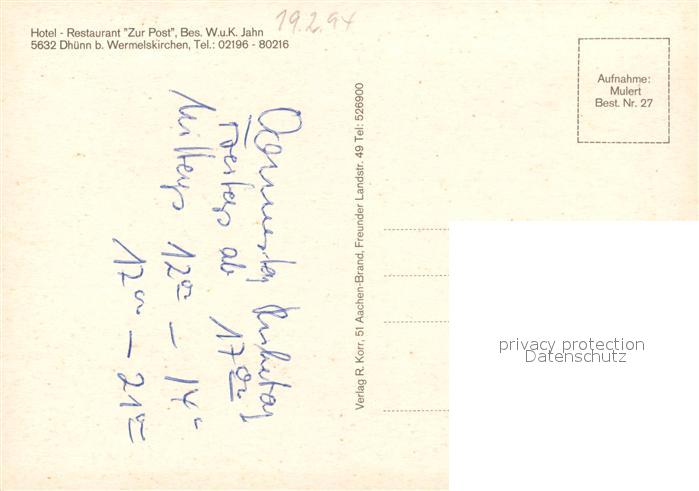 19.2.94
Hotel - Restaurant "Zur Post", Bes. W.u.K. Jahn
5632 Dhünn b. Wermelskirchen, Tel.: 02196 - 80216
Aufnahme:
Mulert
Best. Nr. 27
Donnerstag Ruhetag
Freitags ab 17⁰⁰
Mittags 12⁰⁰ – 14⁰⁰
17⁰⁰ – 21⁰⁰
Verlag R. Korr, 51 Aachen-Brand, Freunder Landstr. 49 Tel: 526900
privacy protection
Datenschutz